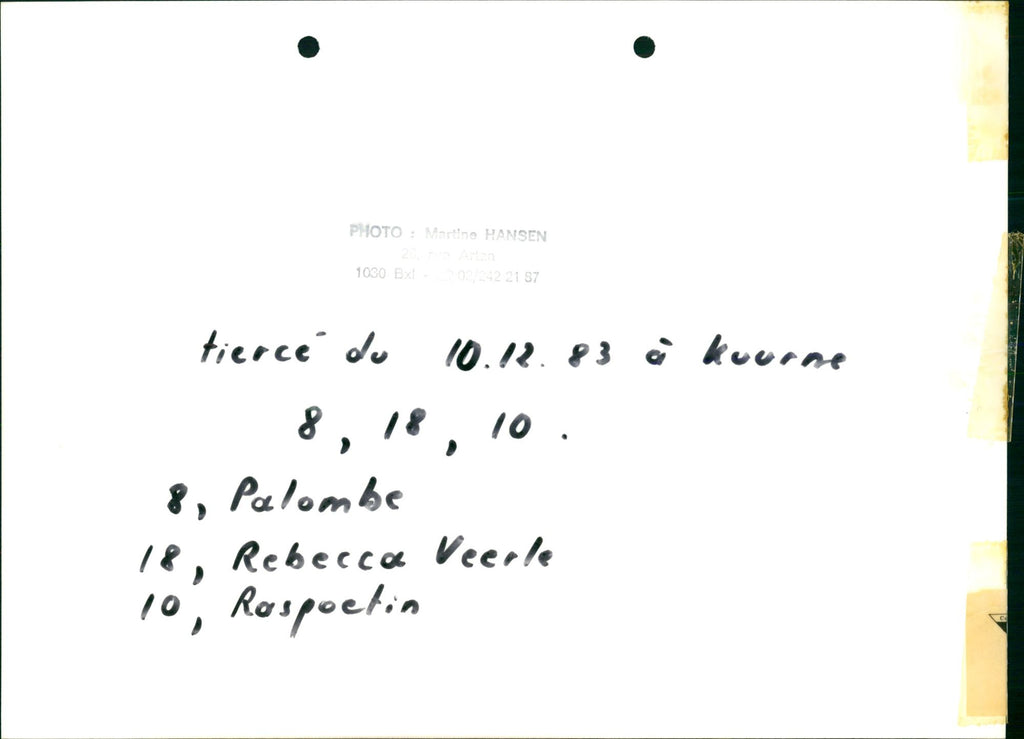 PHOTO : Martine HANSEN
rue Artan
1030 Bxl - 02/242 21 87
tiercé du 10.12.83 à kuurne
8, 18, 10.
8, Palombe
18, Rebecca Veerle
10, Raspoetin